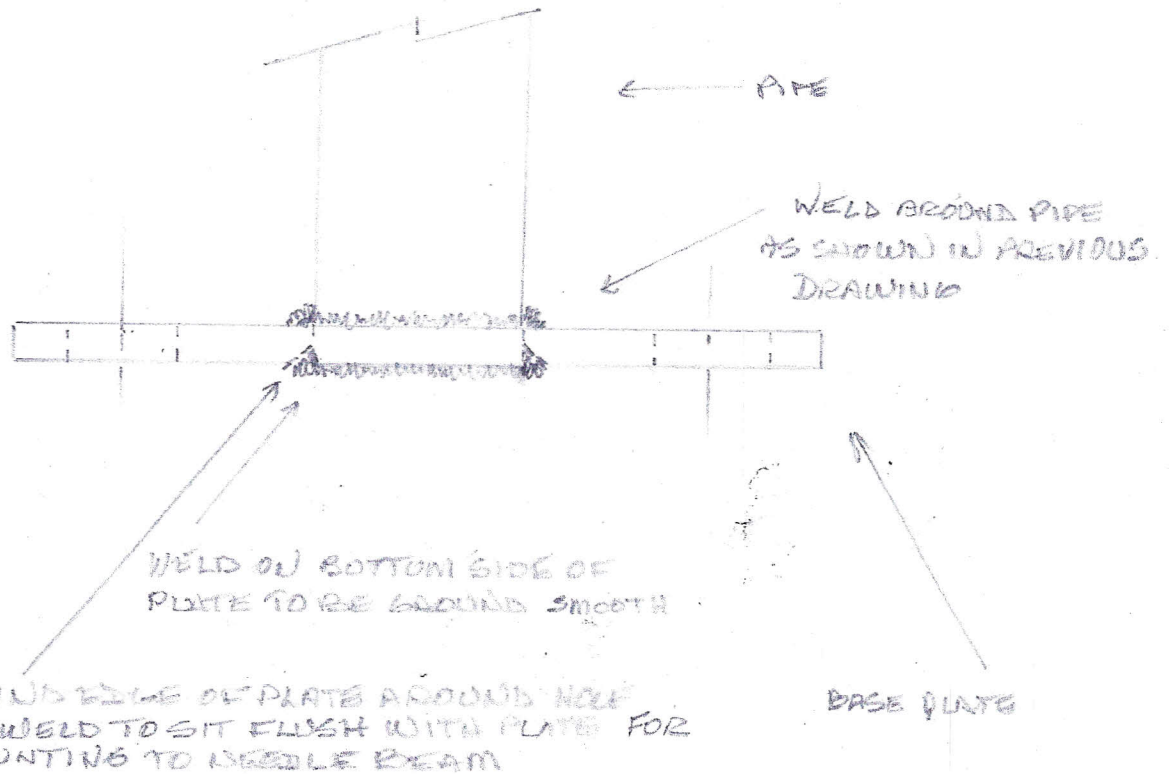 PIPE
WELD AROUND PIPE
AS SHOWN IN PREVIOUS
DRAWING
WELD ON BOTTOM SIDE OF
PLATE TO BE GROUND SMOOTH
IND EDGE OF PLATE AROUND HOLE
WELD TO SIT FLUSH WITH PLATE FOR
UNTING TO NEEDLE BEAM
BASE PLATE